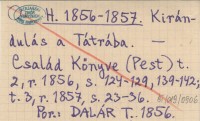 H. 1856-1857. Kirán-
dulás a Tátrába. —
Család Könyve (Pest) t.
2, r. 1856, s. 124-129, 139-142;
t. 3, r. 1857, s. 23-36.
Por.: DALÁR T. 1856.